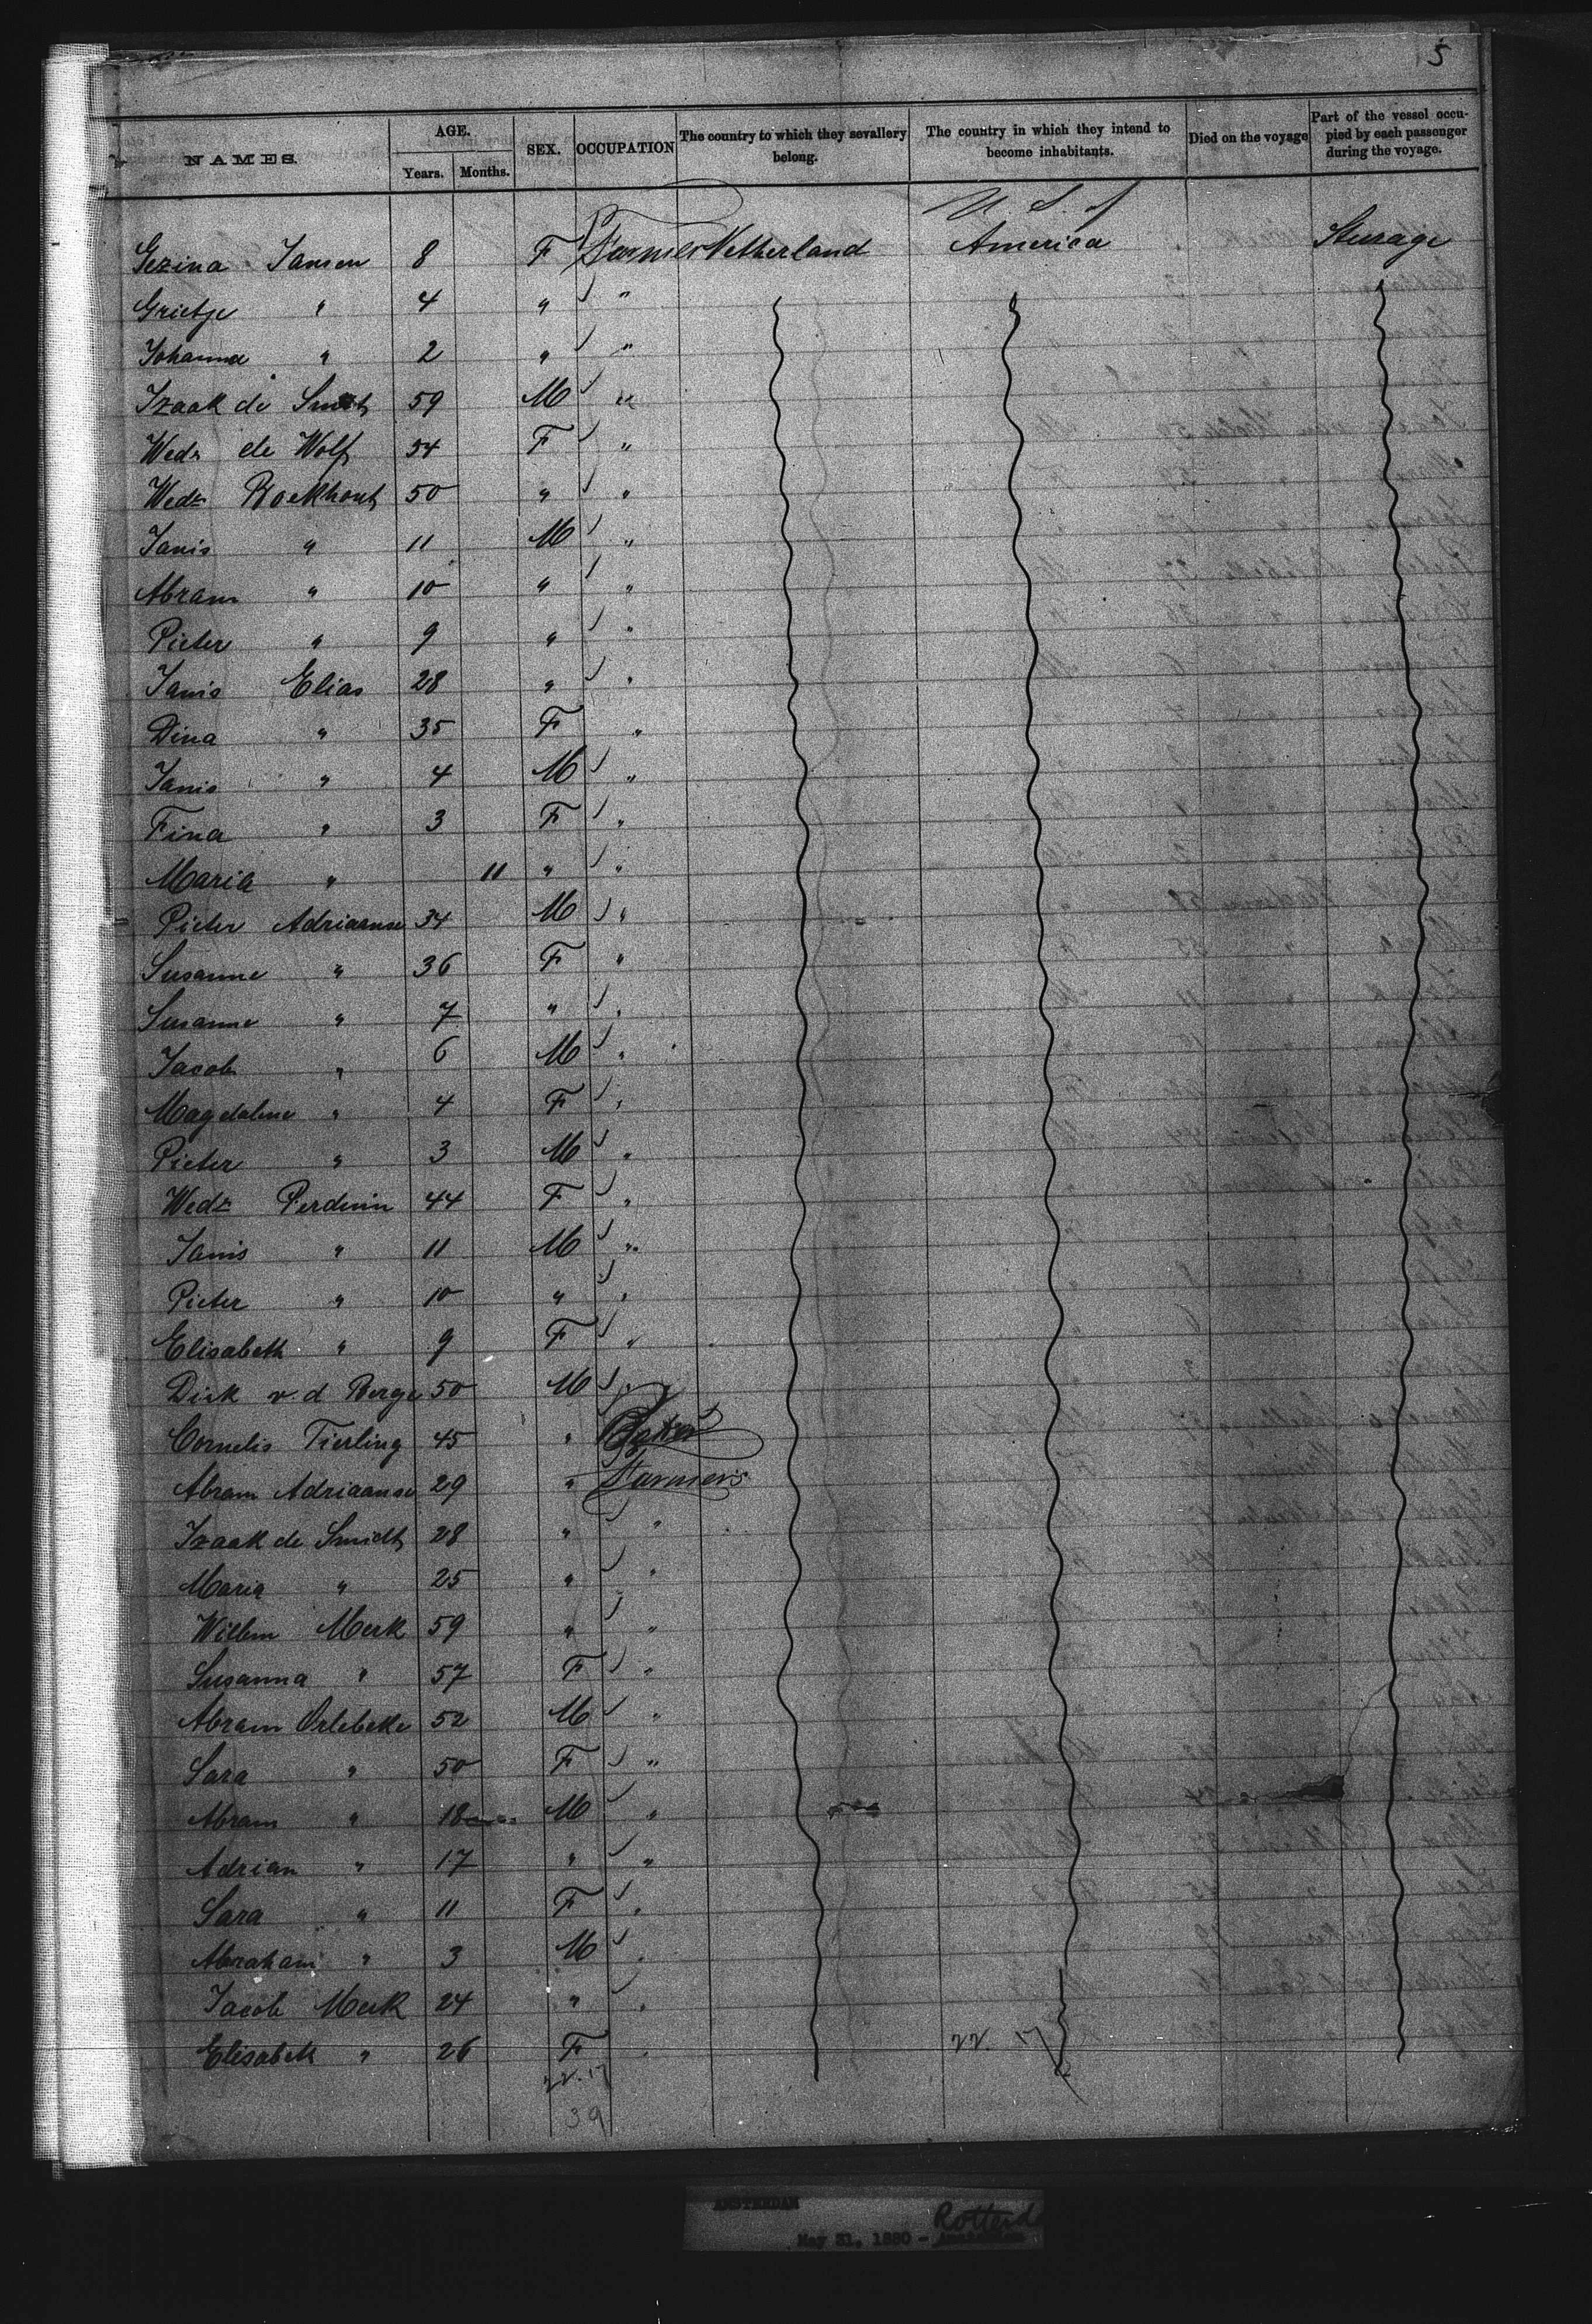 5
NAMES. AGE. Years. Months. SEX. OCCUPATION The country to which they sevallery belong. The country in which they intend to become inhabitants. Died on the voyage Part of the vessel occupied by each passenger during the voyage.
U. S. of
Gezina Jansen 8 F Farmer Netherland America Steerage
Grietje " 4 " "
Johanna " 2 " "
Izaak de Smidt 59 M "
Wedr de Wolf 54 F "
Wedr Boekhout 50 " "
Janis " 11 M "
Abram " 10 " "
Pieter " 9 " "
Janis Elias 28 " "
Dina " 35 F "
Janis " 4 M "
Fina " 3 F "
Maria " 11 " "
Pieter Adriaanse 34 M "
Susanne " 36 F "
Susanne " 7 " "
Jacob " 6 M "
Magdalene " 4 F "
Pieter " 3 M "
Wedr Perduin 44 F "
Janis " 11 M "
Pieter " 10 " "
Elisabeth " 9 F "
Dirk v. d Berge 50 M "
Cornelis Tierling 45 " Baker
Abram Adriaanse 29 " Farmers
Izaak de Smidt 28 " "
Maria " 25 " "
Willem Merk 59 " "
Susanna " 57 F "
Abram Orlebeke 52 M "
Sara " 50 F "
Abram " 18 M "
Adrian " 17 " "
Sara " 11 F "
Abraham " 3 M "
Jacob Merk 24 " "
Elisabeth " 26 F "
22. 17 22. 17
39
AMSTERDAM
May 21, 1880 - Rotterd